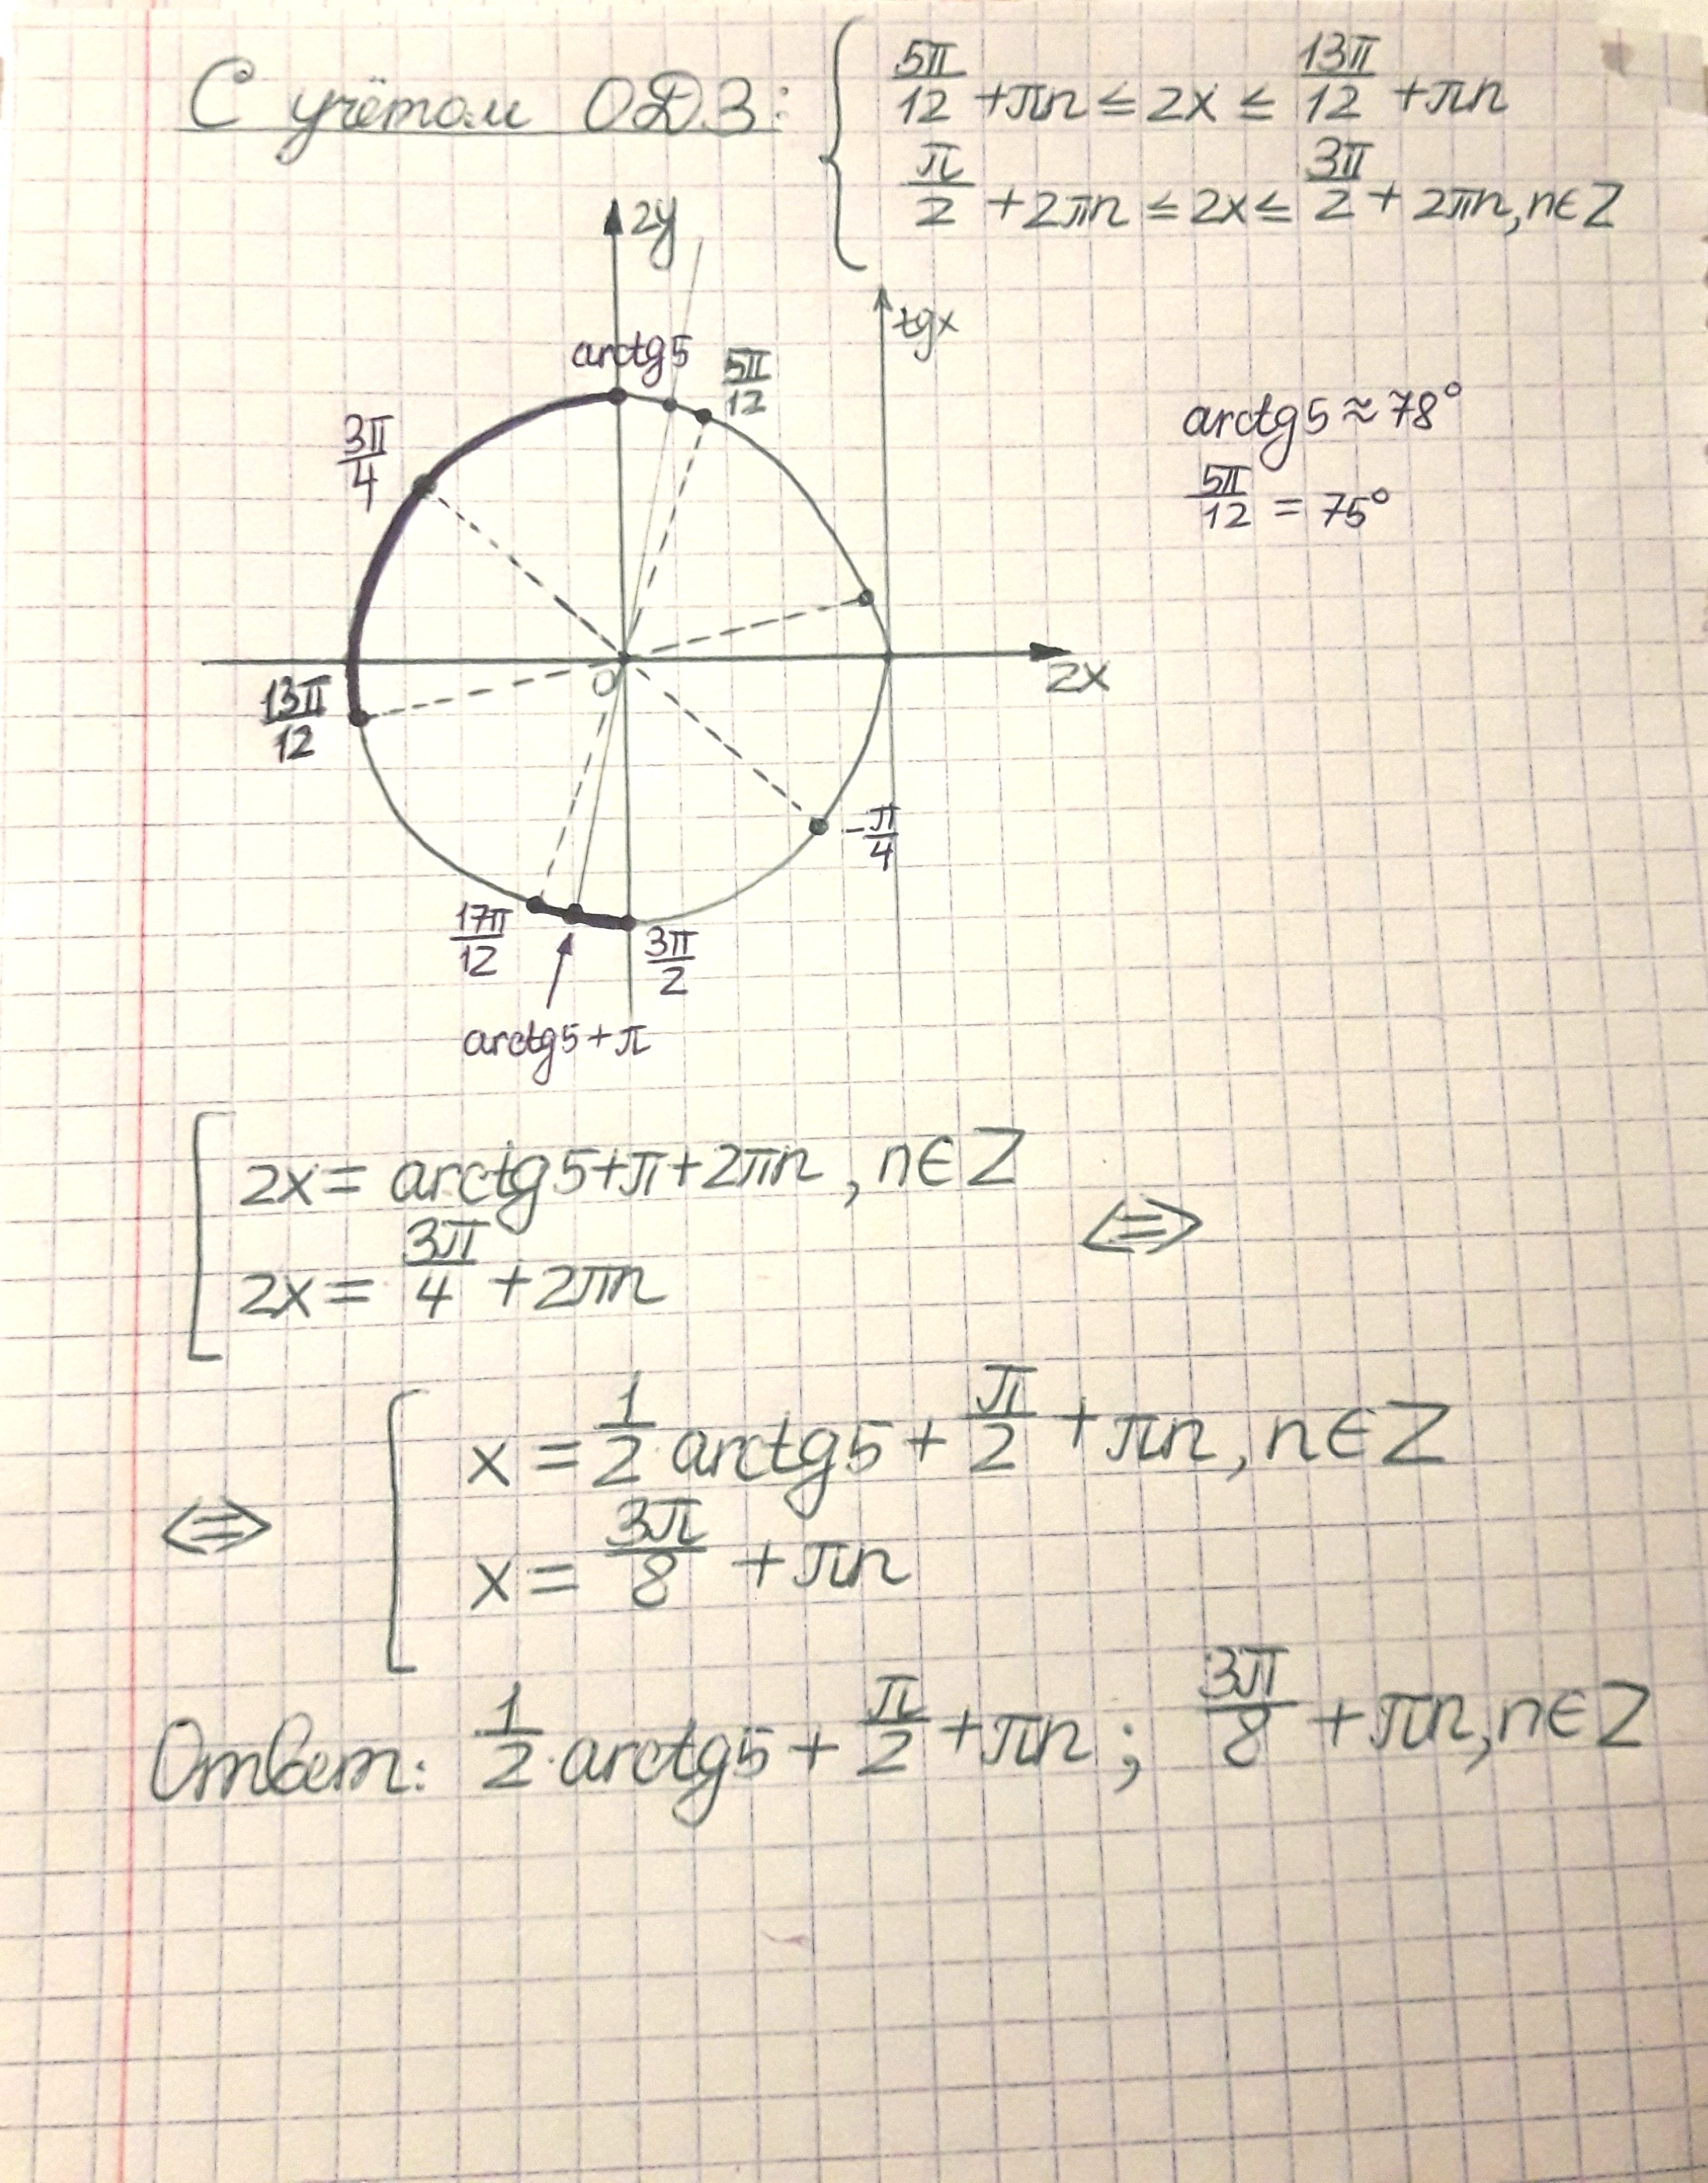 С учётом ОДЗ: { 5π/12 + πn ≤ 2x ≤ 13π/12 + πn
π/2 + 2πn ≤ 2x ≤ 3π/2 + 2πn, n∈Z
2y
tgx
arctg5
5π/12
3π/4
arctg5 ≈ 78°
5π/12 = 75°
0
2x
13π/12
-π/4
17π/12
3π/2
arctg5+π
[ 2x = arctg5+π+2πn, n∈Z
2x = 3π/4 + 2πn <=>
<=> [ x = 1/2·arctg5 + π/2 + πn, n∈Z
x = 3π/8 + πn
Ответ: 1/2·arctg5 + π/2 + πn ; 3π/8 + πn, n∈Z